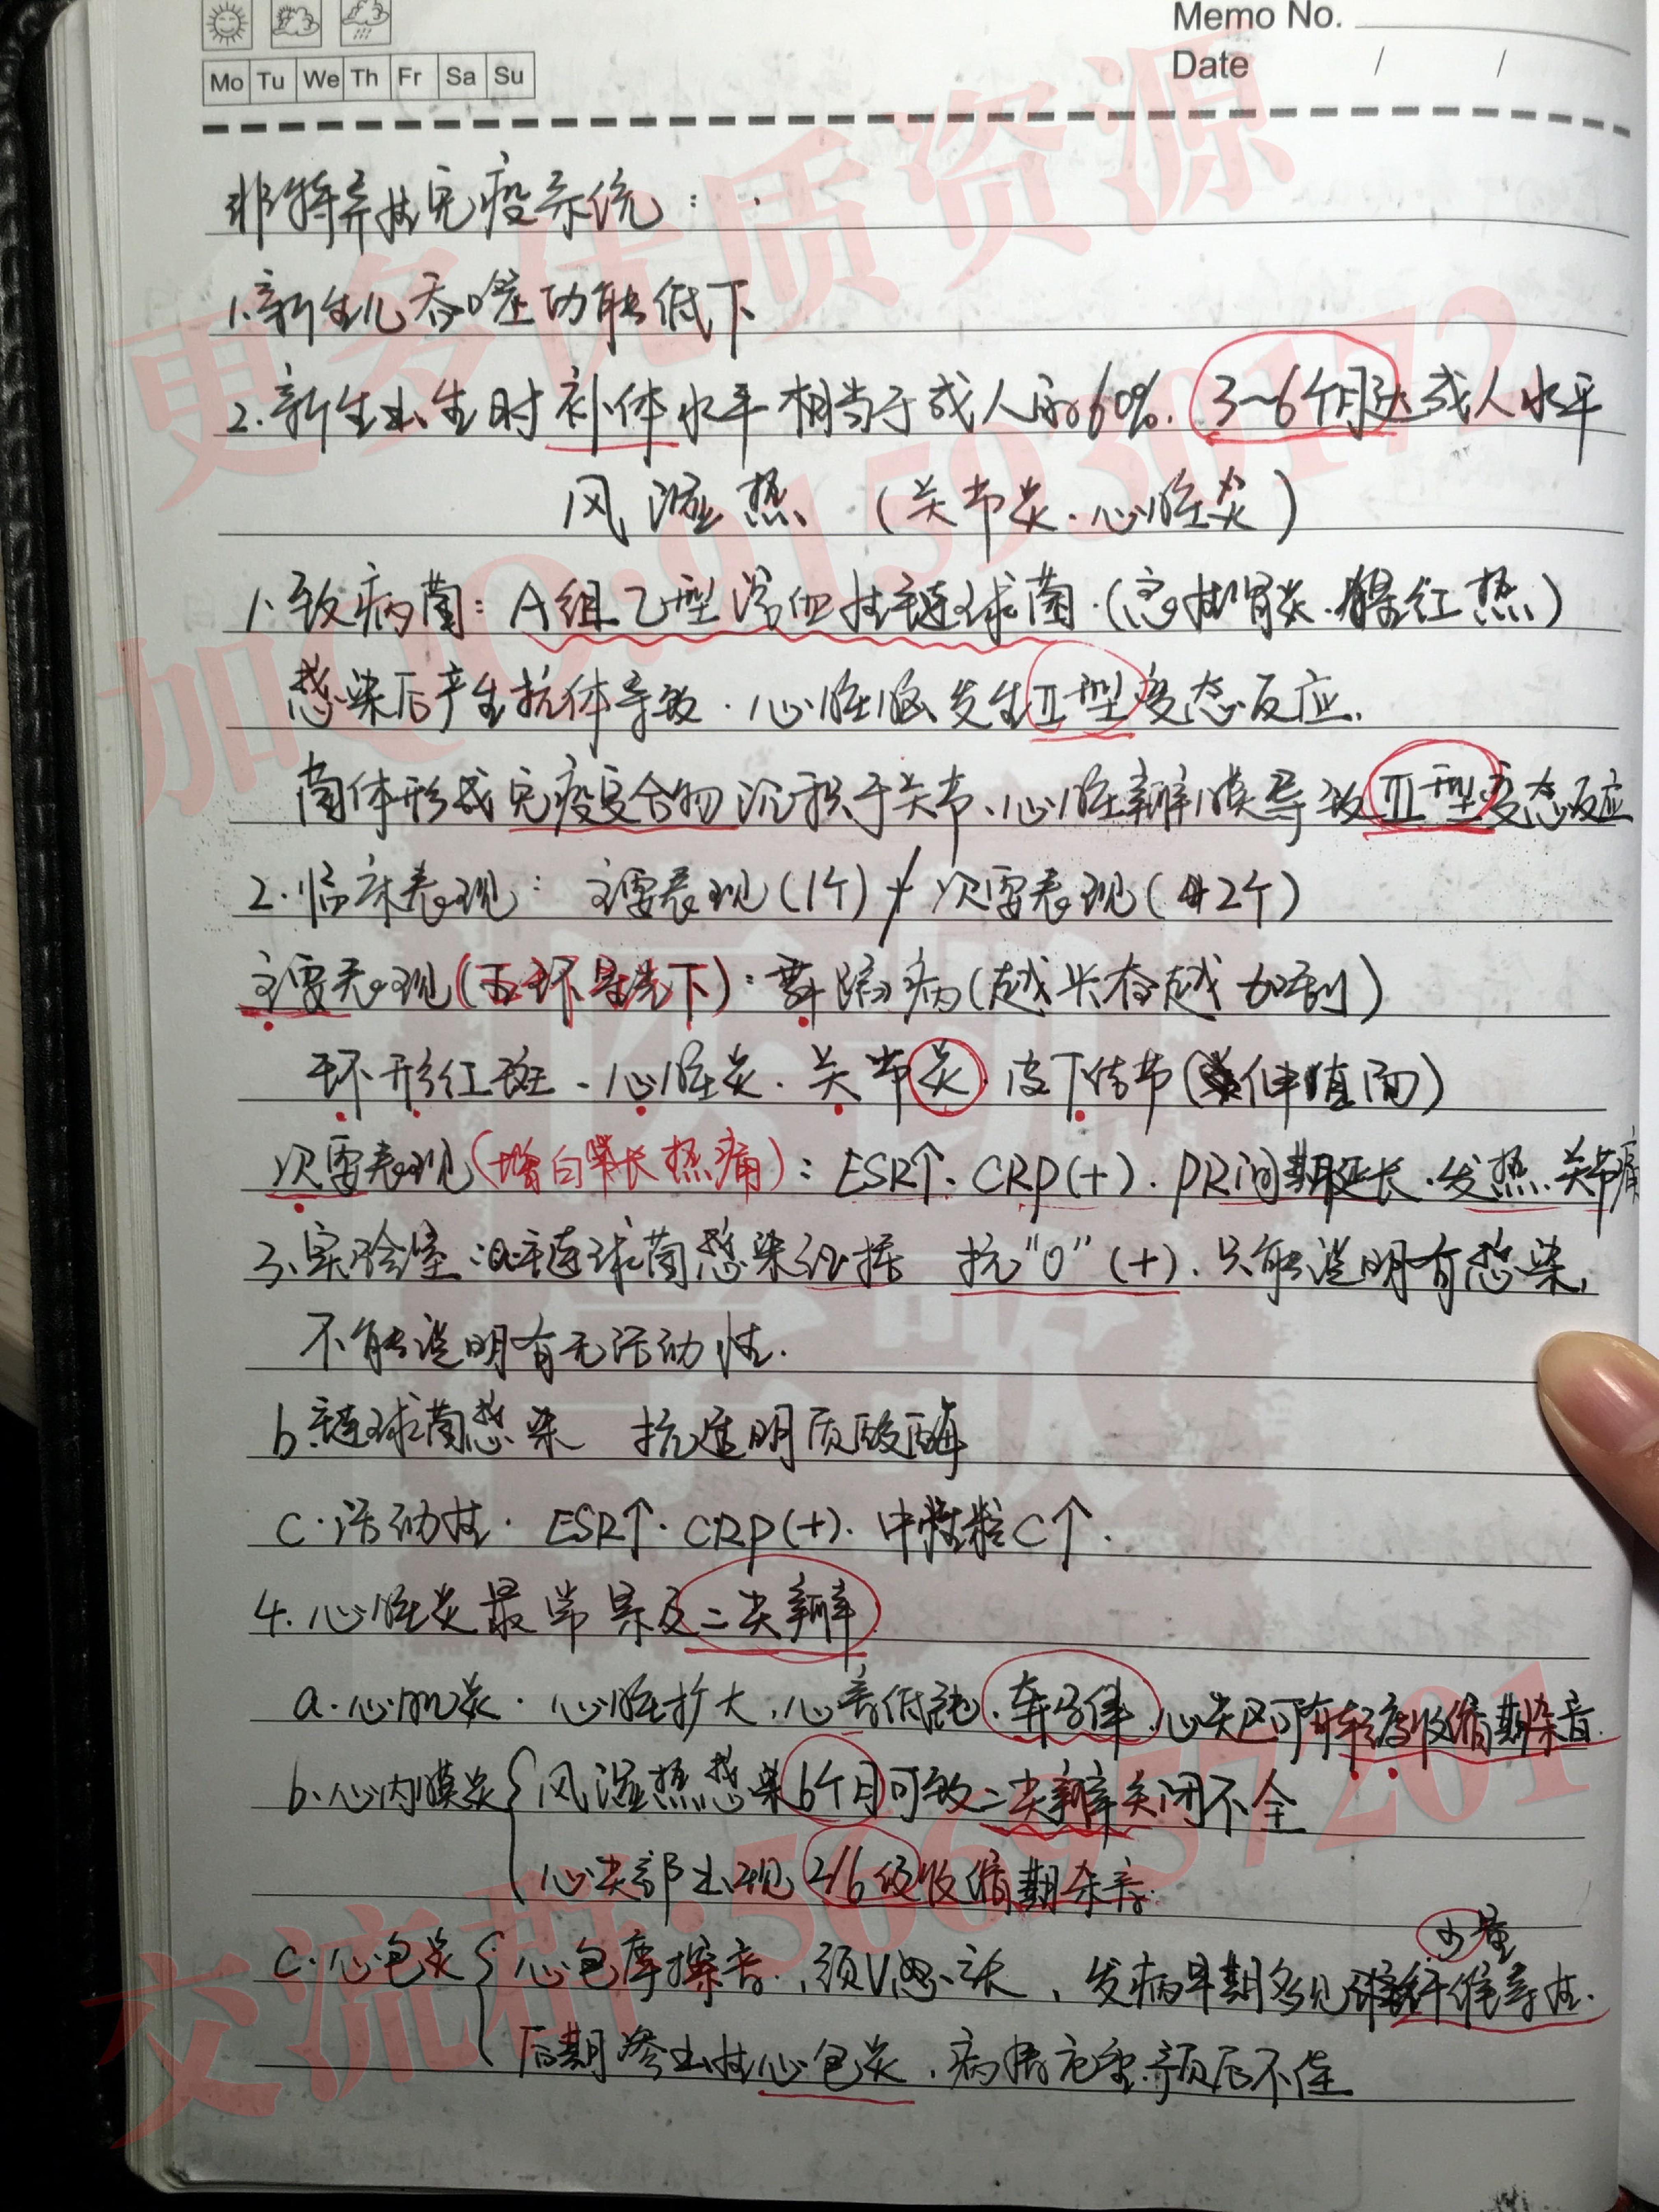 Memo No.
Mo Tu We Th Fr Sa Su
Date / /
非特异性免疫系统:
1.新生儿吞噬功能低下
2.新生出生时补体水平相当于成人的60%.3~6个月达成人水平
风湿热 (关节炎.心脏炎)
1.致病菌:A组乙型溶血性链球菌.(急性肾炎.猩红热)
感染后产生抗体导致.心脏脑发生II型变态反应.
菌体形成免疫复合物沉积于关节、心脏瓣膜导致III型变态反应
2.临床表现: 主要表现(1个)+次要表现(2个)
主要表现(五环星洗下):舞蹈病(越兴奋越加剧)
环形红斑、心脏炎.关节炎.皮下结节(伸直面)
次要表现(增白带长热痛):ESR↑.CRP(+).PR间期延长.发热.关节痛
3.实验室:a链球菌感染证据 抗"O"(+).只能说明有感染,
不能说明有无活动性.
b.链球菌感染 抗透明质酸酶
c.活动性.ESR↑.CRP(+).中性粒C↑.
4.心脏炎最常累及二尖瓣
a.心肌炎.心脏扩大,心音低钝.奔马律.心尖区可有轻度收缩期杂音.
b.心内膜炎{风湿热感染6个月可致二尖瓣关闭不全
心尖部出现2/6级收缩期杂音.
少量
c.心包炎{心包摩擦音.颈V怒张,发病早期多见纤维素性.
后期渗出性心包炎.病情危重预后不佳
更多优质资源
加QQ:915930172
交流群:566957201